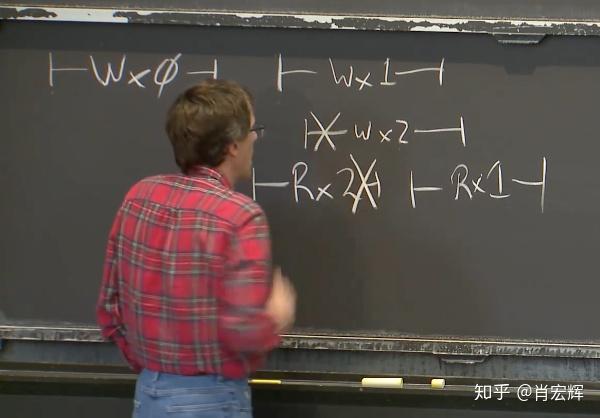 |-Wx0-| |-Wx1-|
|-Wx2-|
|-Rx2-| |-Rx1-|
知乎 @肖宏辉